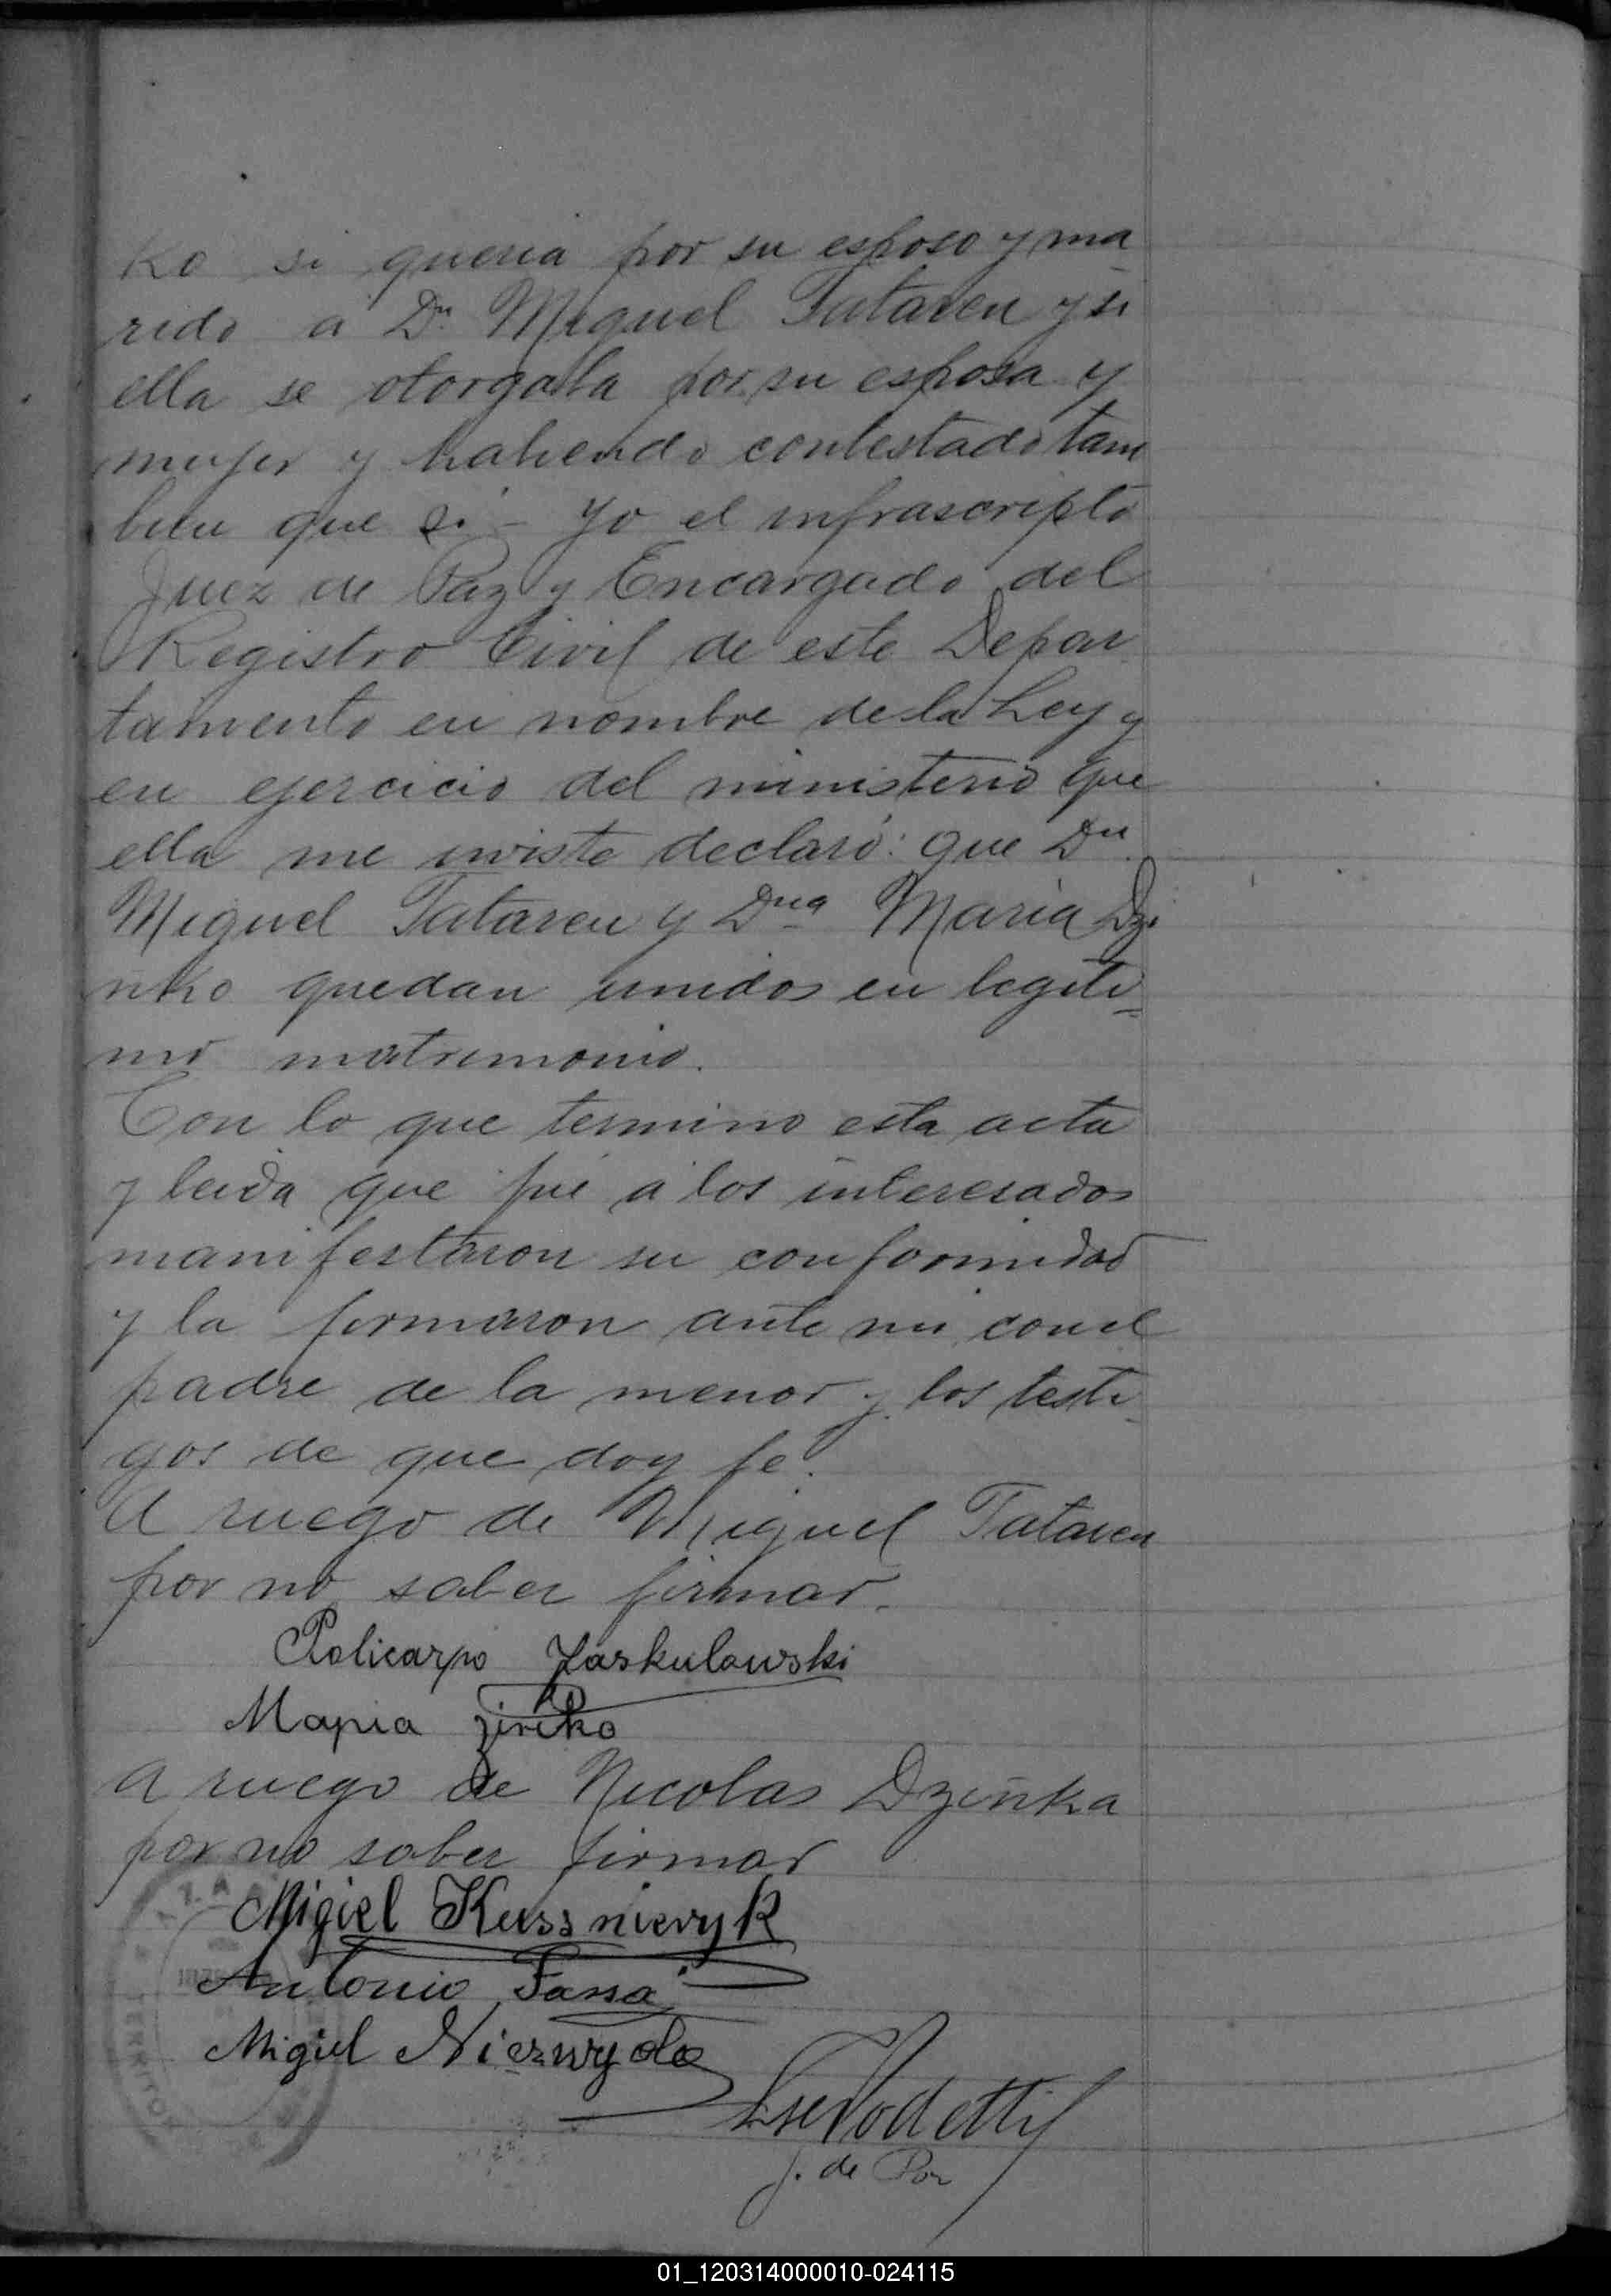 ko si queria por su esposo y ma
rido a Dn. Miguel Tataren y si
ella se otorgaba por su esposa y
mujer y habiendo contestado tam
bien que si - Yo el infrascripto
Juez de Paz y Encargado del
Registro Civil de este Depar
tamento en nombre de la Ley y
en ejercicio del ministerio que
ella me inviste declaró: que Dn
Miguel Tataren y Dna María Dzi
ñko quedan unidos en legiti=
mo matrimonio.
Con lo que termino esta acta
y leida que fué a los interesados
manifestaron su conformidad
y la firmaron ante mi, con el
padre de la menor y los testi-
gos de que doy fe.
A ruego de Miguel Tataren
por no saber firmar.
Policarpo Jaskulowski
Мариа
A ruego de Nicolas Dziñka
por no saber firmar
Migiel Kussnieryk
Antonio Fassa
Migiel
J. de Paz
TERRITOR
01_120314000010-024115